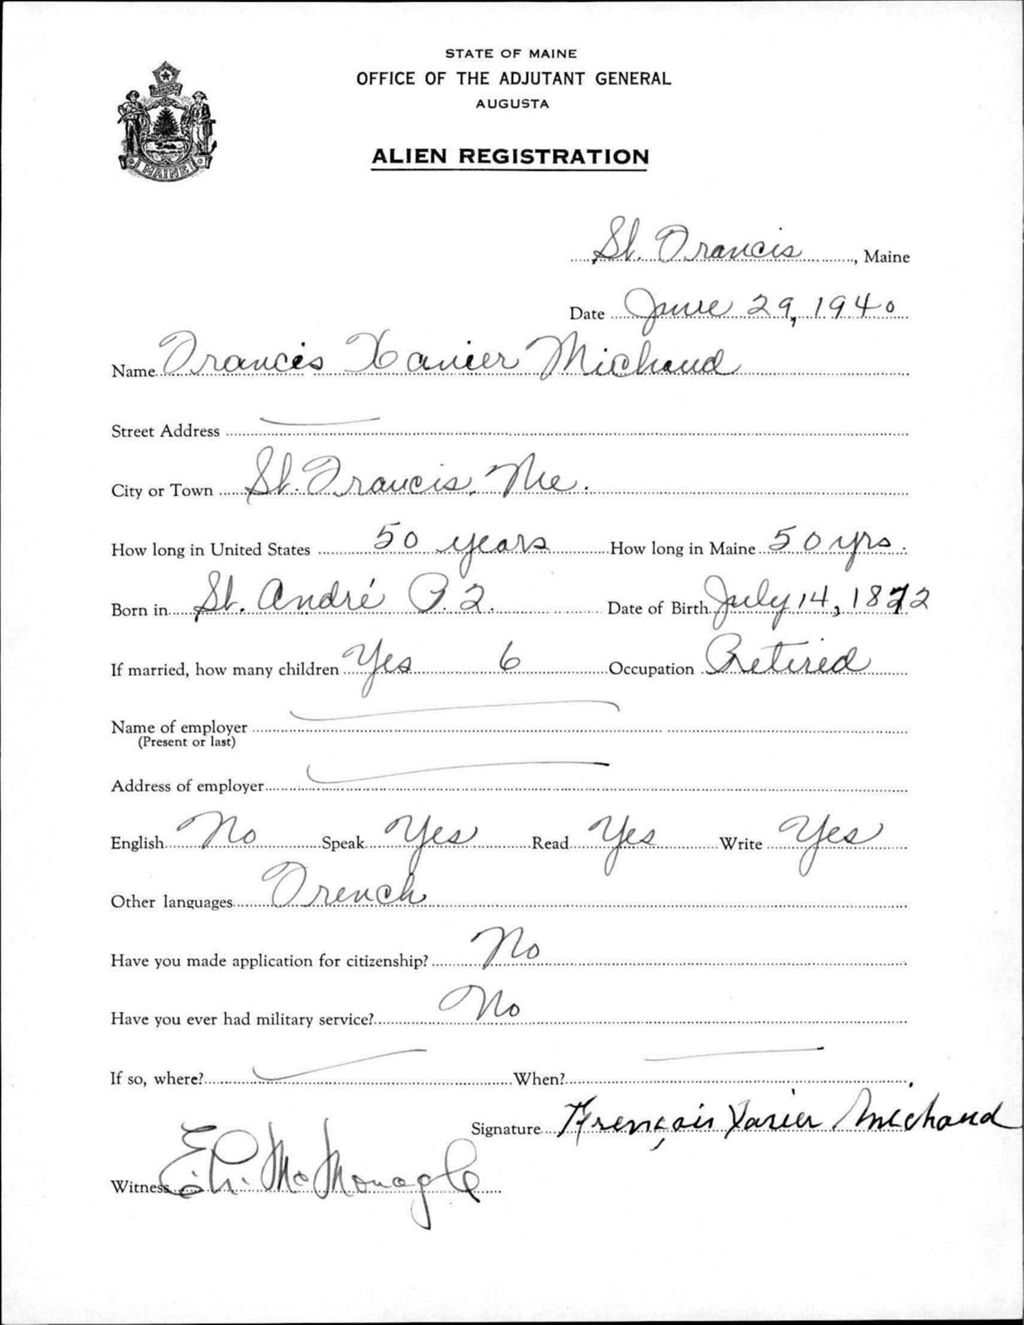 STATE OF MAINE
OFFICE OF THE ADJUTANT GENERAL
AUGUSTA
ALIEN REGISTRATION
MAINE
St. Francis, Maine
Date June 29, 1940
Name Francis Xavier Michaud
Street Address
City or Town St. Francis, Me.
How long in United States 50 years How long in Maine 50 yrs.
Born in St. André P.Q. Date of Birth July 14, 1872
If married, how many children Yes 6 Occupation Retired
Name of employer
(Present or last)
Address of employer
English No Speak Yes Read Yes Write Yes
Other languages French
Have you made application for citizenship? No
Have you ever had military service? No
If so, where? When?
Signature Frençois Xavier Michaud
Witness McMonagle